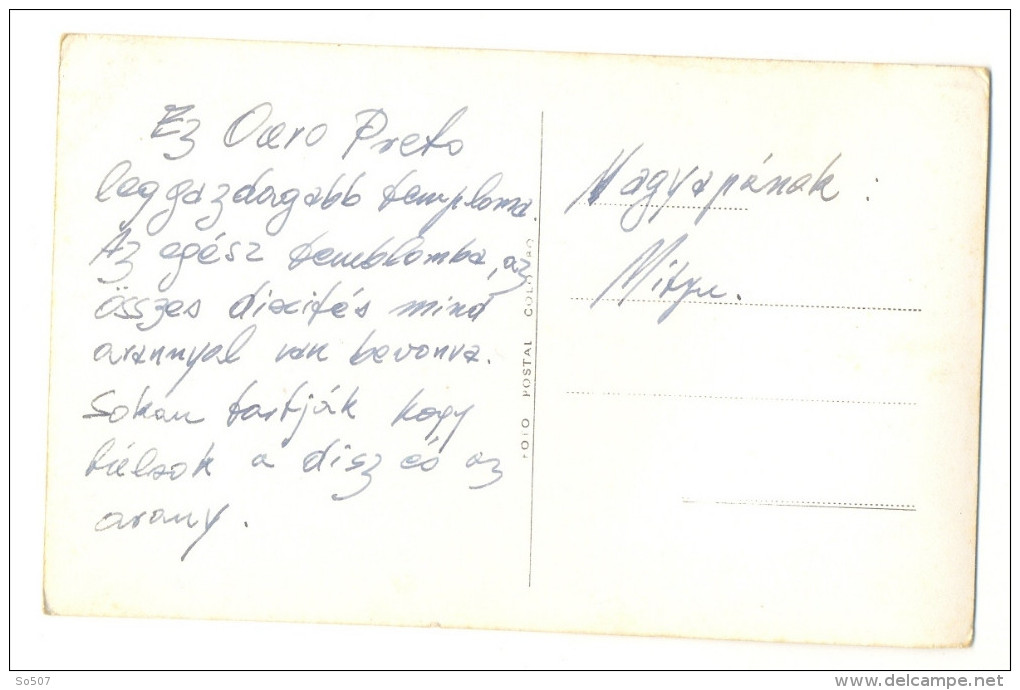 Ez Ouro Preto
leggazdagabb temploma.
Az egész temblomba, az
összes dixités mind
arannyal van bevonva.
Sokan tartják hogy
túlsok a disz és az
arany.
FOTO POSTAL COLOMBO
Nagyapának:
Mityu.
So507
delcampe.net